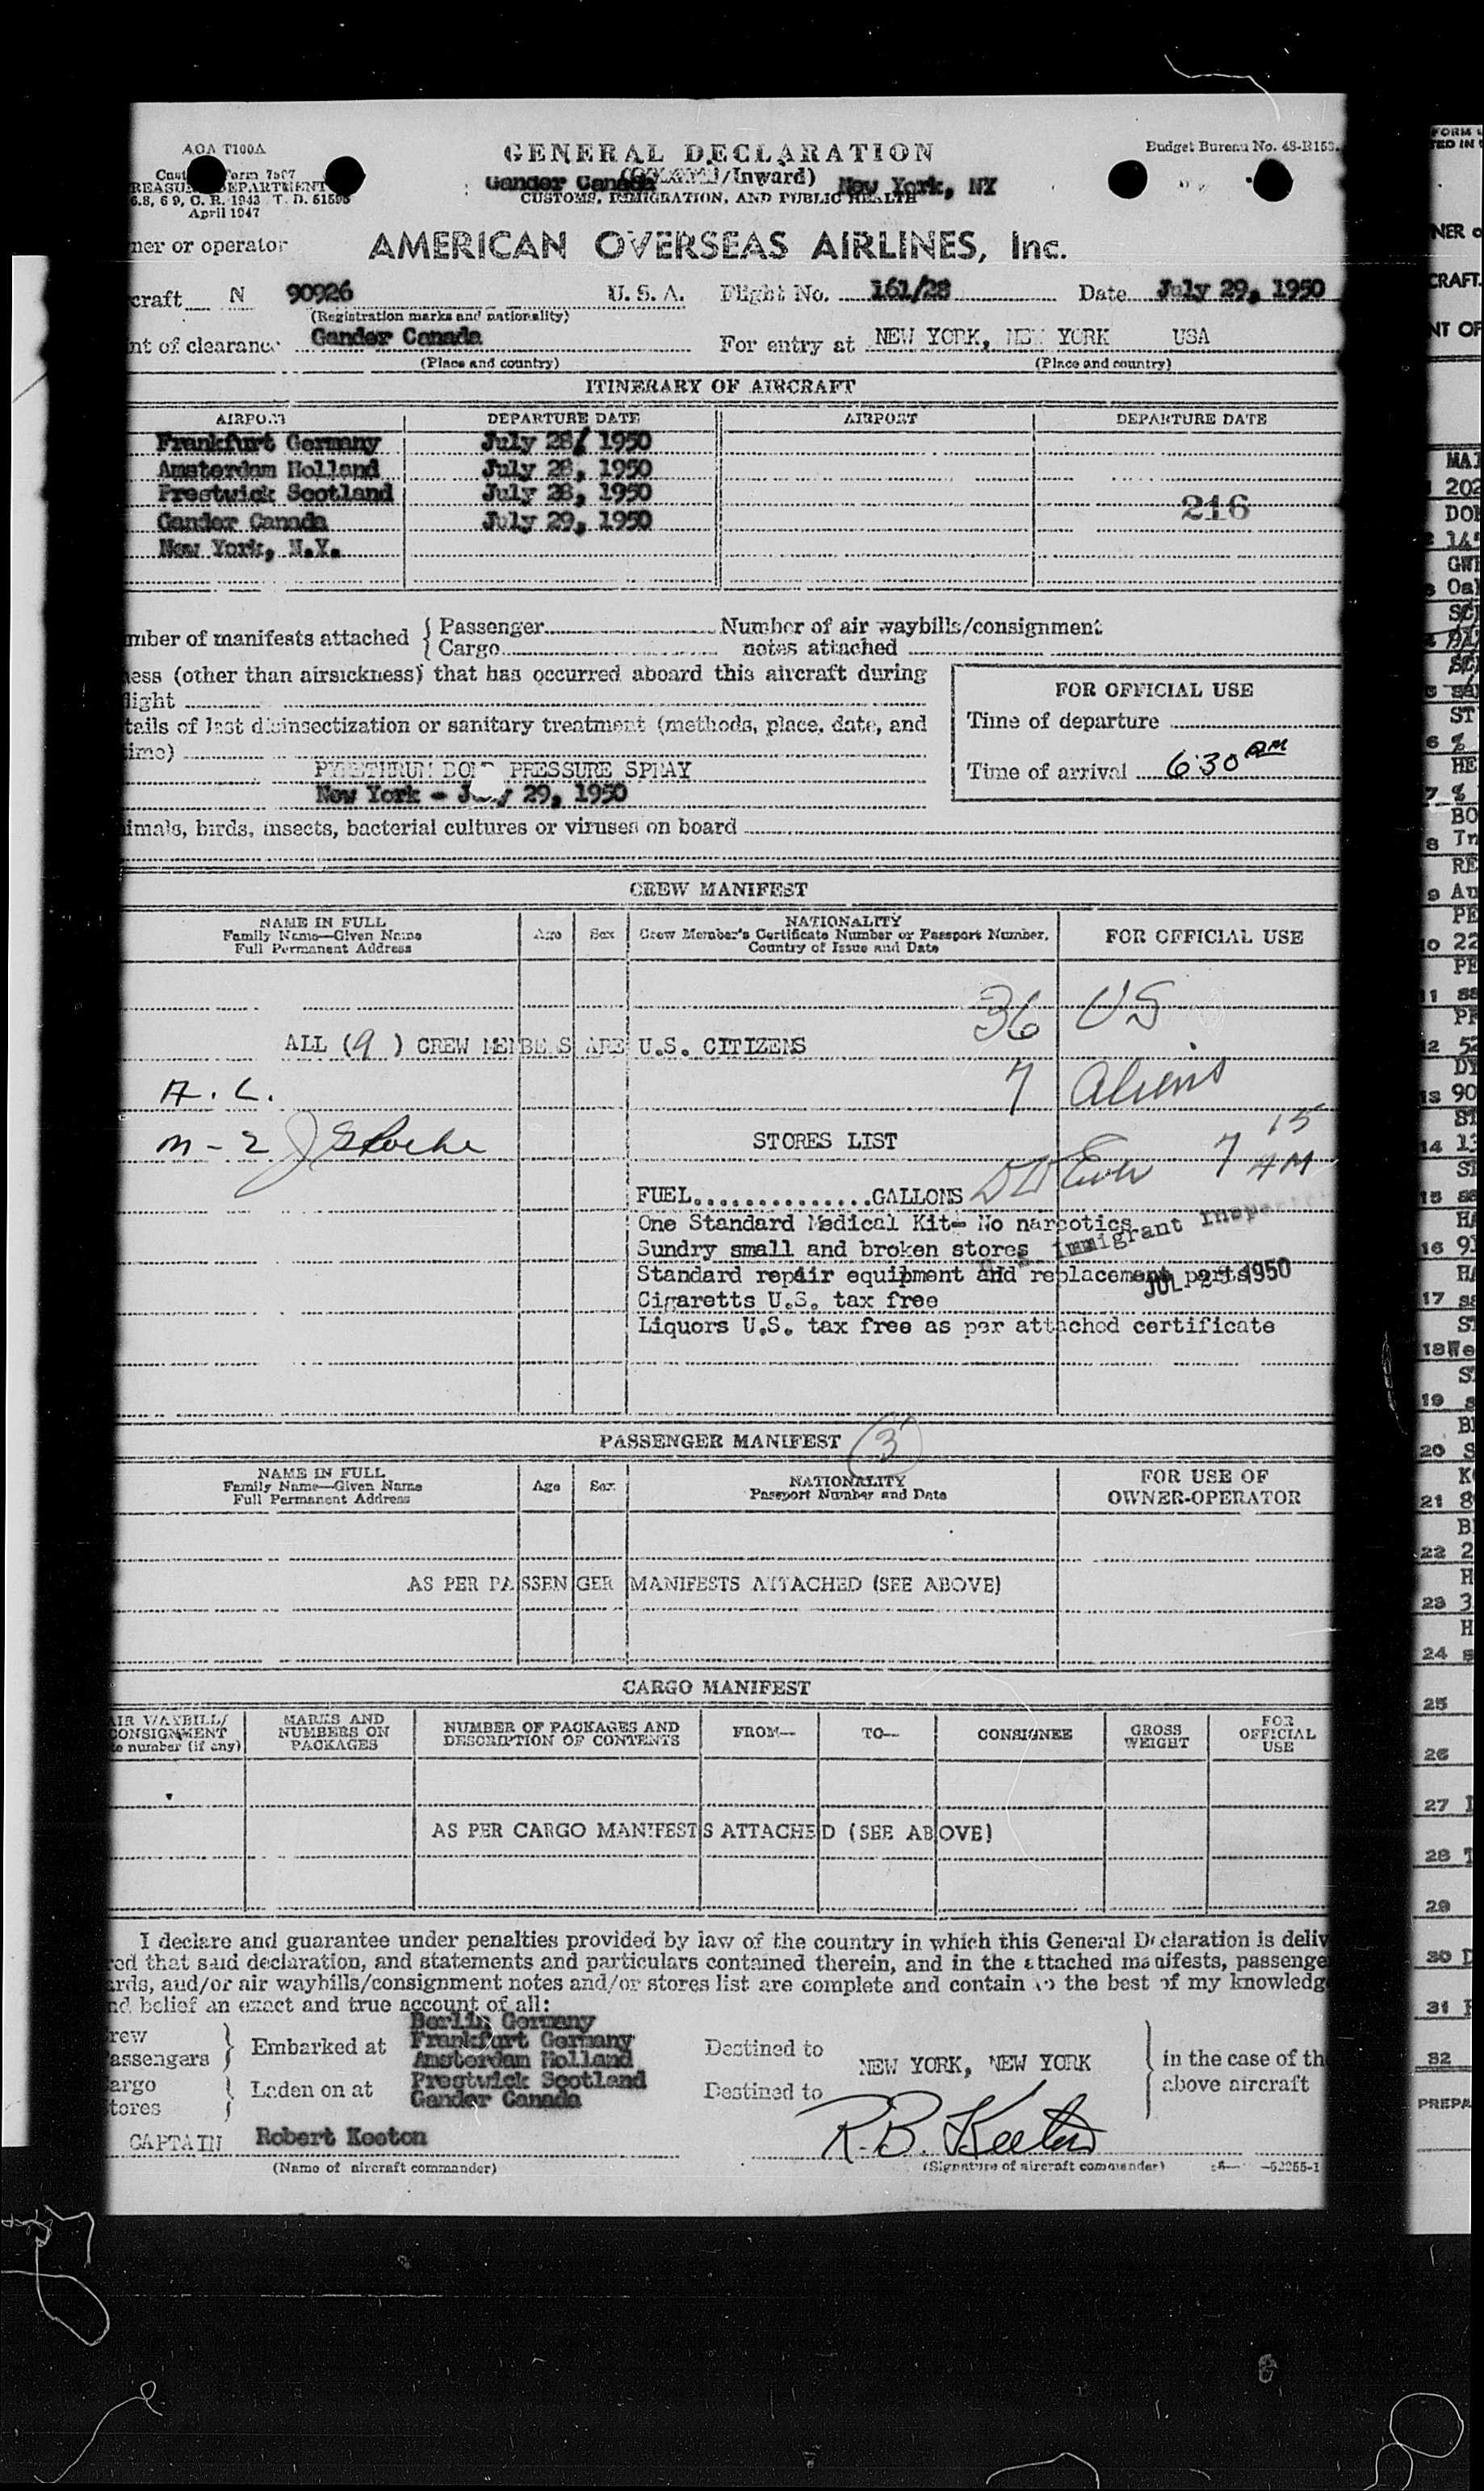 AOA T100A
GENERAL DECLARATION
Budget Bureau No. 48-R153.
(Outward/Inward)
Gander Canada New York, NY
CUSTOMS, IMMIGRATION, AND PUBLIC HEALTH
REASURY DEPARTMENT
6.8, 6 9, C. R. 1943 T. D. 51595
April 1947
ner or operator AMERICAN OVERSEAS AIRLINES, Inc.
craft N 90926 U. S. A. Flight No. 161/28 Date July 29, 1950
(Registration marks and nationality)
nt of clearance Gander Canada For entry at NEW YORK, NEW YORK USA
(Place and country) (Place and country)
ITINERARY OF AIRCRAFT
AIRPORT DEPARTURE DATE AIRPORT DEPARTURE DATE
Frankfurt Germany July 28, 1950
Amsterdam Holland July 28, 1950
Prestwick Scotland July 28, 1950 216
Gander Canada July 29, 1950
New York, N.Y.
mber of manifests attached { Passenger Number of air waybills/consignment
{ Cargo notes attached
ness (other than airsickness) that has occurred aboard this aircraft during
light
FOR OFFICIAL USE
Time of departure
tails of last disinsectization or sanitary treatment (methods, place, date, and
time)
Time of arrival 6:30 AM
PYRETHRUM BOMB PRESSURE SPRAY
New York - July 29, 1950
imals, birds, insects, bacterial cultures or viruses on board
CREW MANIFEST
NAME IN FULL
Family Name—Given Name
Full Permanent Address
Age Sex
NATIONALITY
Crew Member's Certificate Number or Passport Number,
Country of Issue and Date
FOR OFFICIAL USE
36 US
ALL (9 ) CREW MEMBERS ARE U.S. CITIZENS
7 aliens
A. L.
M-2
STORES LIST
7 15 AM
FUEL..............GALLONS
One Standard Medical Kit- No narcotics
Immigrant Inspector
Sundry small and broken stores
Standard repair equipment and replacement parts
JUL 29 1950
Cigaretts U.S. tax free
Liquors U.S. tax free as per attached certificate
PASSENGER MANIFEST 3
NAME IN FULL
Family Name—Given Name
Full Permanent Address
Age Sex
NATIONALITY
Passport Number and Date
FOR USE OF
OWNER-OPERATOR
AS PER PASSENGER MANIFESTS ATTACHED (SEE ABOVE)
CARGO MANIFEST
AIR WAYBILL/
CONSIGNMENT
te number (if any)
MARKS AND
NUMBERS ON
PACKAGES
NUMBER OF PACKAGES AND
DESCRIPTION OF CONTENTS
FROM— TO— CONSIGNEE
GROSS
WEIGHT
FOR
OFFICIAL
USE
AS PER CARGO MANIFESTS ATTACHED (SEE ABOVE)
I declare and guarantee under penalties provided by law of the country in which this General Declaration is deliv
red that said declaration, and statements and particulars contained therein, and in the attached manifests, passenge
ards, and/or air waybills/consignment notes and/or stores list are complete and contain to the best of my knowledg
nd belief an exact and true account of all:
rew
assengers } Embarked at
argo
tores } Laden on at
Berlin Germany
Frankfurt Germany
Amsterdam Holland
Prestwick Scotland
Gander Canada
Destined to
NEW YORK, NEW YORK
Destined to
in the case of th
above aircraft
CAPTAIN Robert Keeton R.B. Keeton
(Name of aircraft commander) (Signature of aircraft commander)